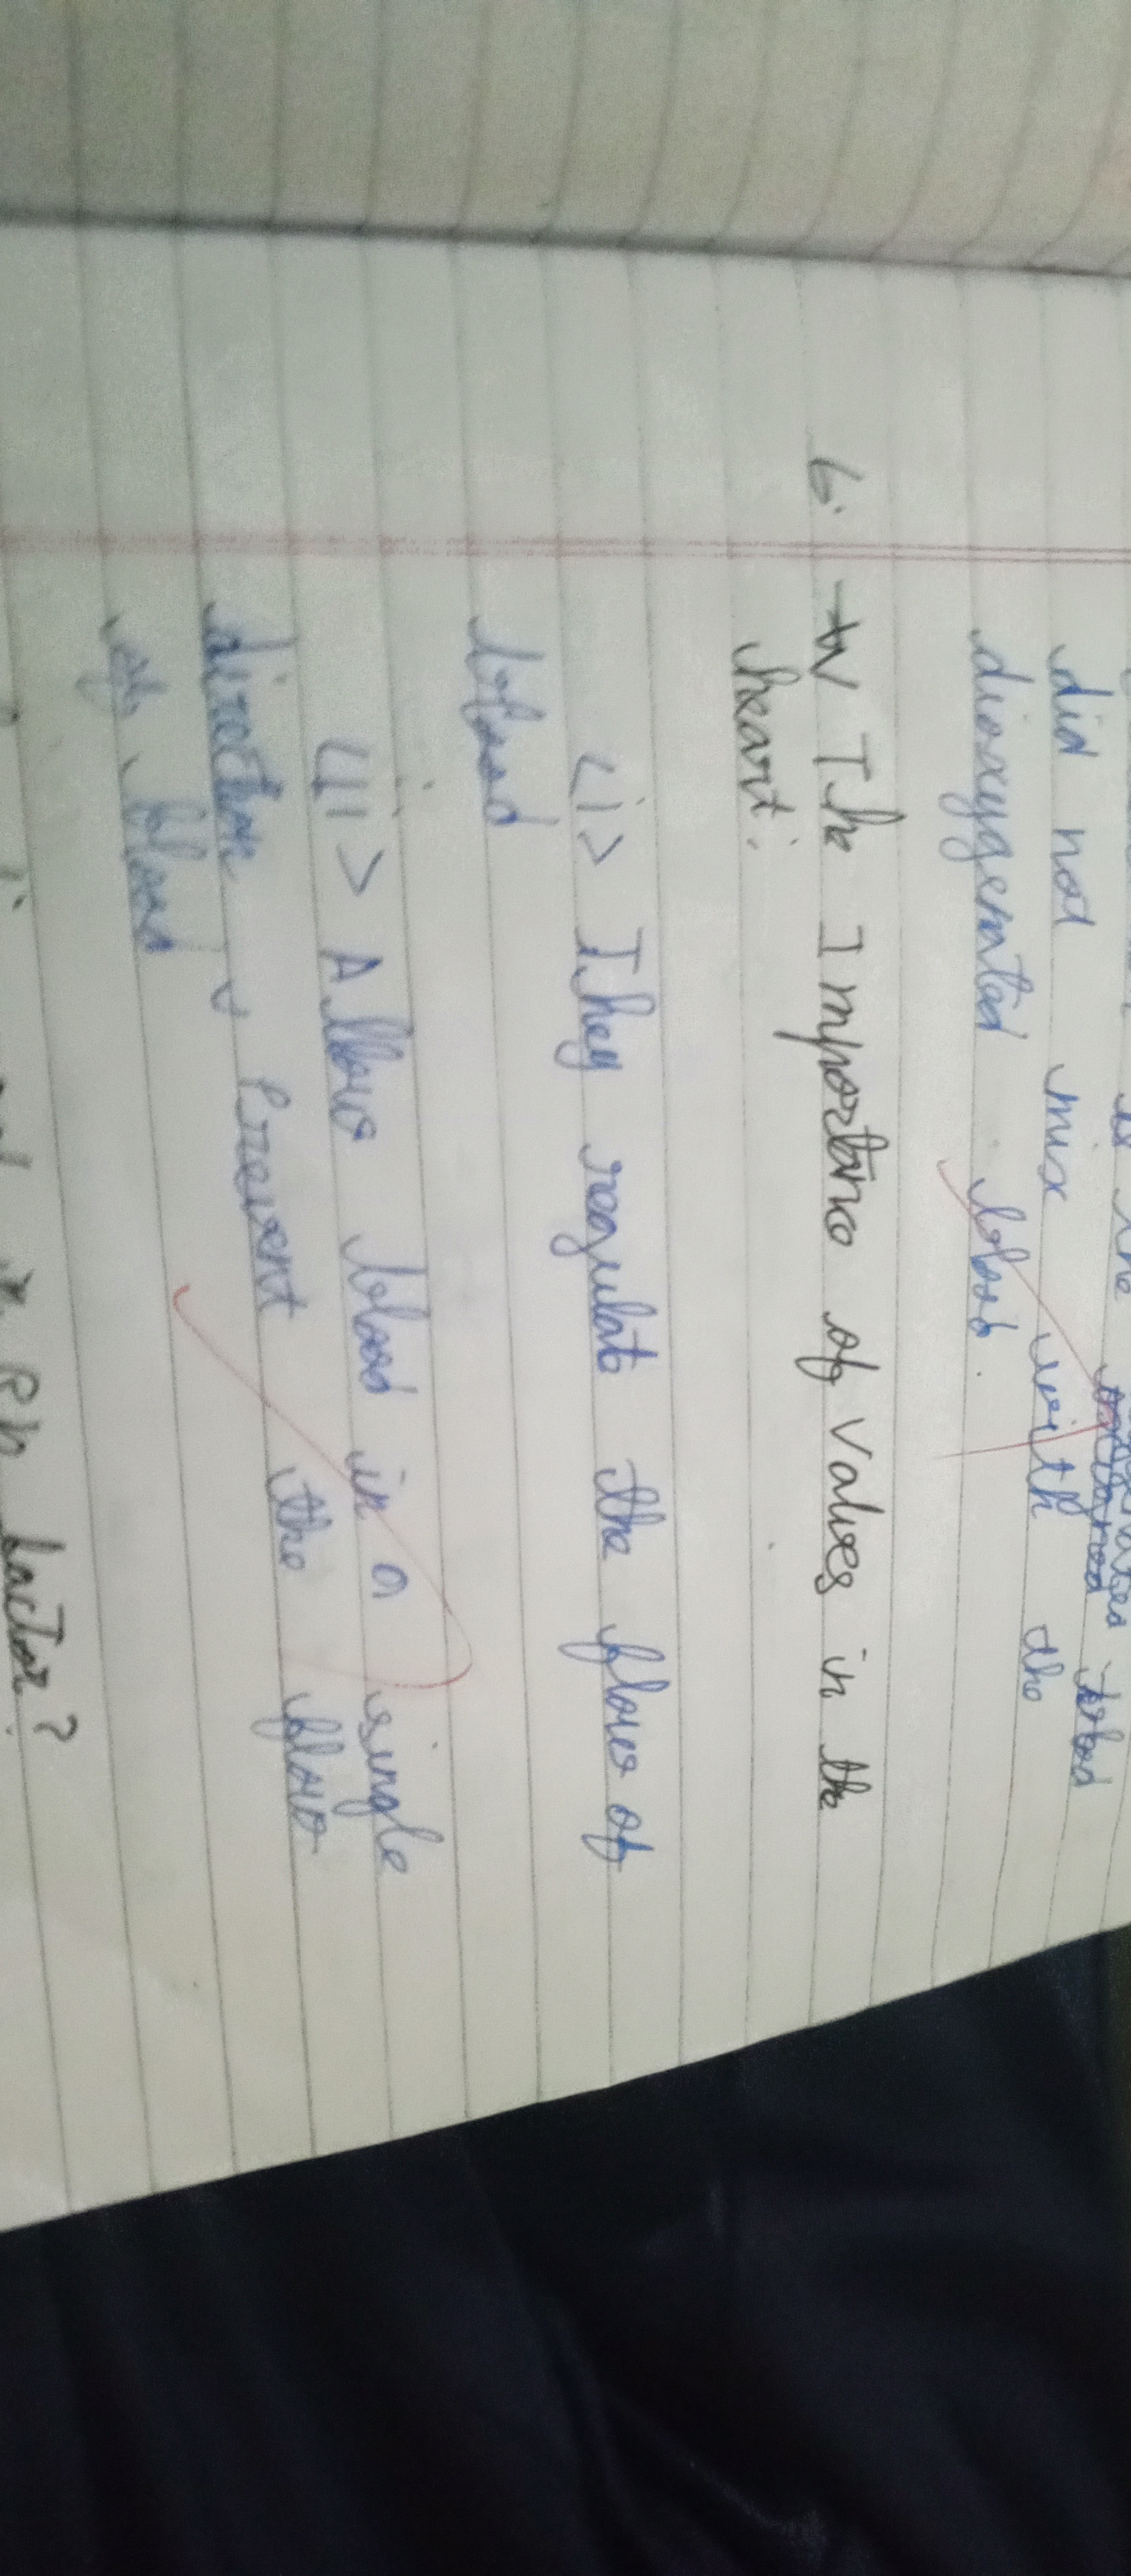 did not mix with the
dioxygented blood.
6. The Importance of Valves in the
heart:
<i> They regulate the flow of
blood
<ii> Allow blood in a single
direction & Prevent the flow
of blood
in Rh factor?